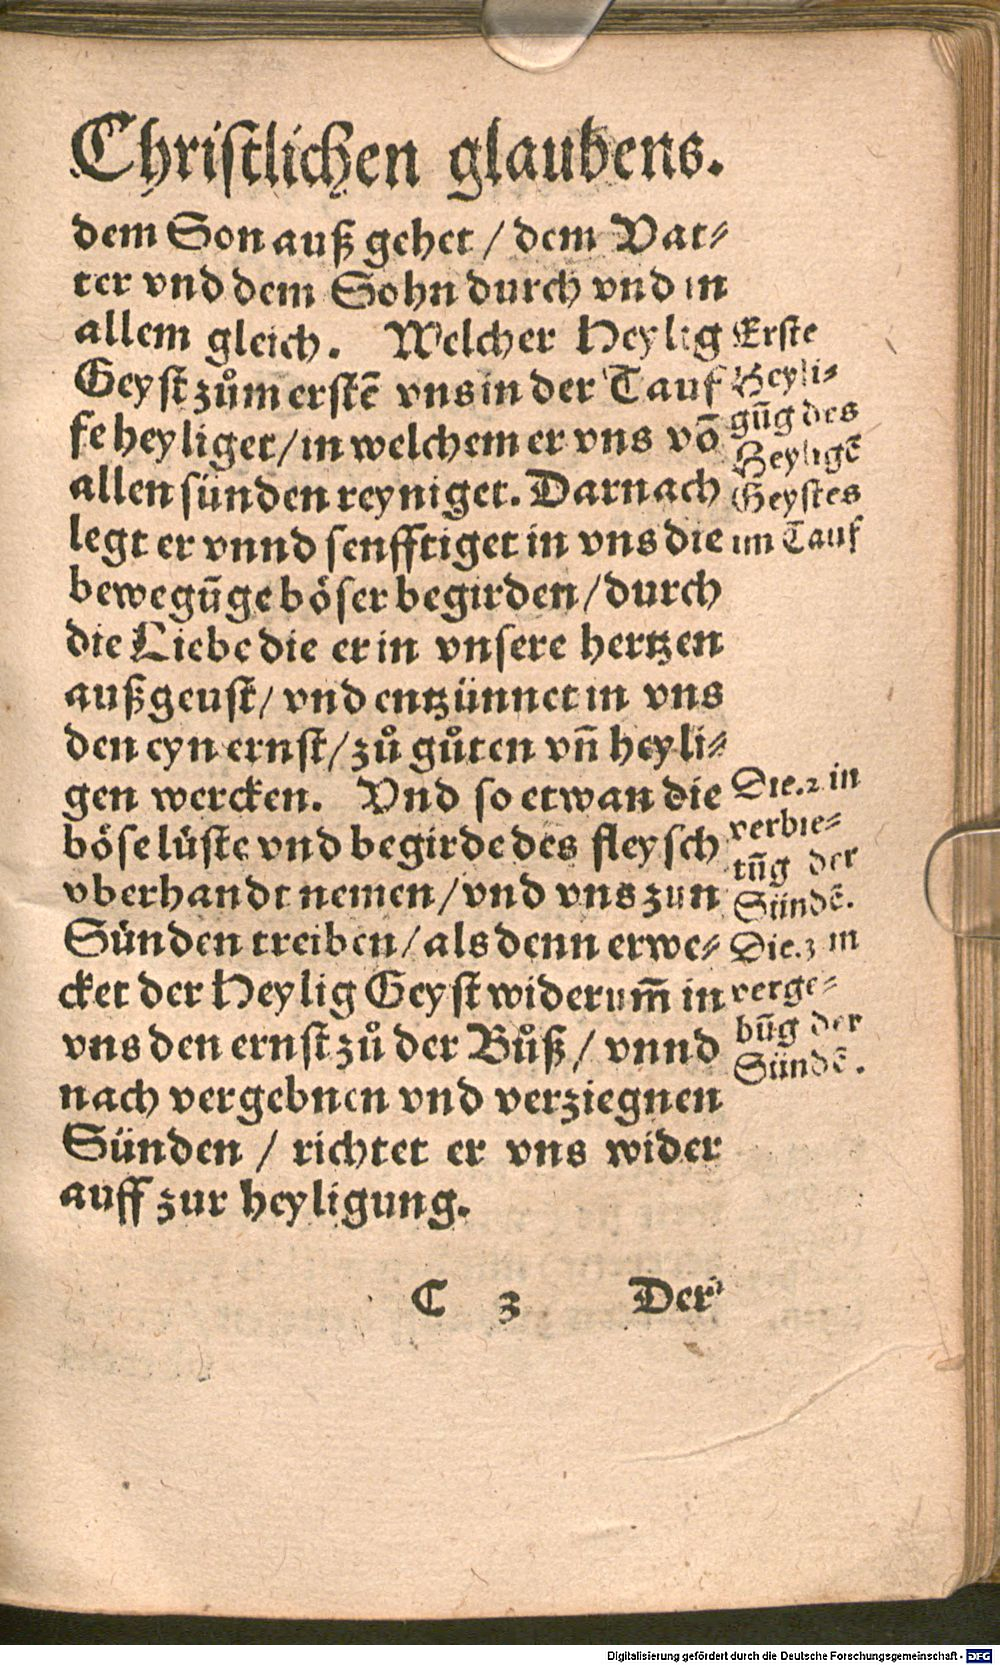 Christlichen glaubens.
dem Son auß gehet / dem Vat⸗
ter vnd dem Sohn durch vnd in
allem gleich. Welcher Heylig
Geyst zům erstē vns in der Tauf
fe heyliget / in welchem er vns vō
allen sünden reyniget. Darnach
legt er vnnd senfftiget in vns die
bewegūge böser begirden / durch
die Liebe die er in vnsere hertzen
außgeust / vnd entzünnet in vns
den eyn ernst / zů gůten vñ heyli⸗
gen wercken. Vnd so etwan die
böse lüste vnd begirde des fleysch
vberhandt nemen / vnd vns zun
Sünden treiben / als denn erwe⸗
cket der Heylig Geyst widerum̄ in
vns den ernst zů der Bůß / vnnd
nach vergebnen vnd verziegnen
Sünden / richtet er vns wider
auff zur heyligung.
Erste
Heyli⸗
gūg des
Heyligē
Geystes
im Tauf
Die.2 in
verbie⸗
tūg der
Sündē.
Die.3 in
verge⸗
būg der
Sündē.
C 3 Der
Digitalisierung gefördert durch die Deutsche Forschungsgemeinschaft - DFG